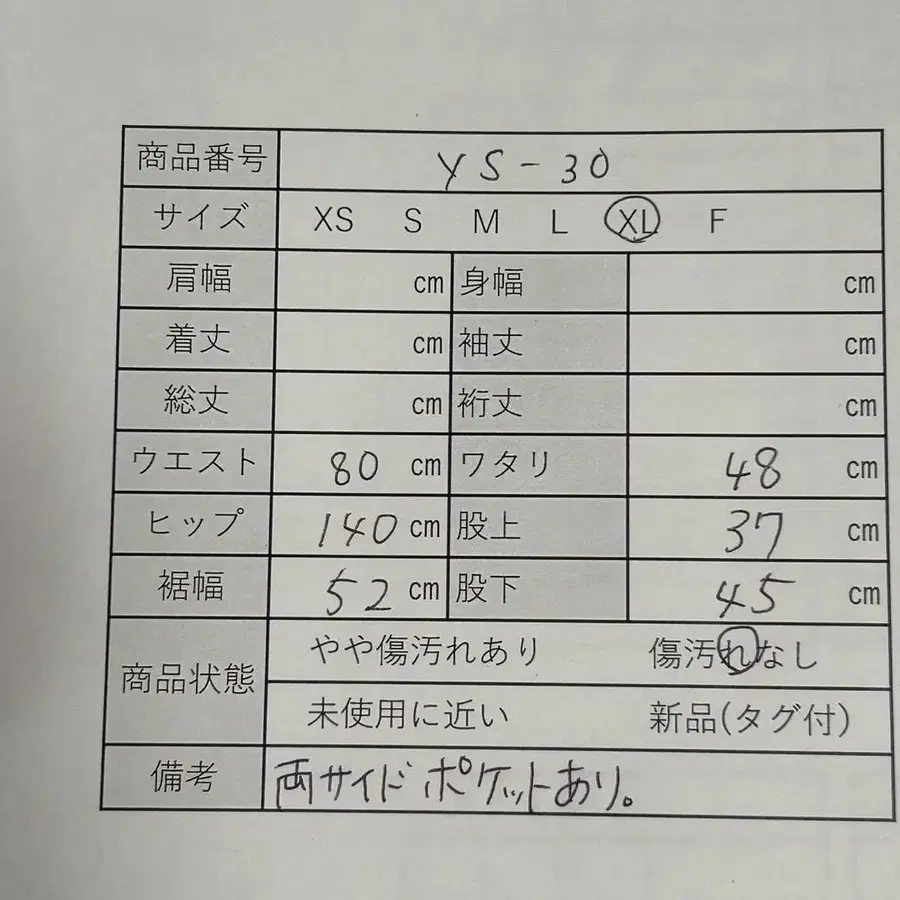 商品番号 YS-30
サイズ XS S M L XL F
肩幅 cm 身幅 cm
着丈 cm 袖丈 cm
総丈 cm 裄丈 cm
ウエスト 80 cm ワタリ 48 cm
ヒップ 140 cm 股上 37 cm
裾幅 52 cm 股下 45 cm
商品状態 やや傷汚れあり 傷汚れなし
未使用に近い 新品(タグ付)
備考 両サイドポケットあり。